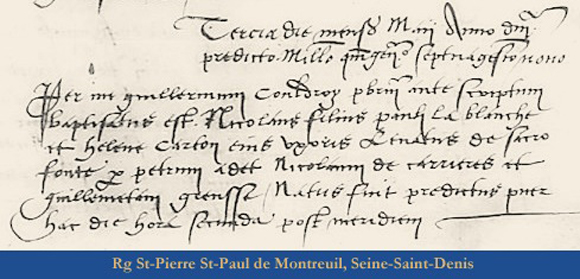 Tercia die mensis Maii Anno dni
predicto Millo quingen.o septuagesimo nono
Per me guillermum Couldroy pbrum ante scriptum
baptisatus est Nicolaus filius pauli La blanche
et Helene Carton eius uxoris Levatus de sacro
fonte p petrum adet Nicolaum de carrieres et
guillemetam greusse / Natus fuit predictus puer
hac die hora secunda post meridiem
Rg St-Pierre St-Paul de Montreuil, Seine-Saint-Denis